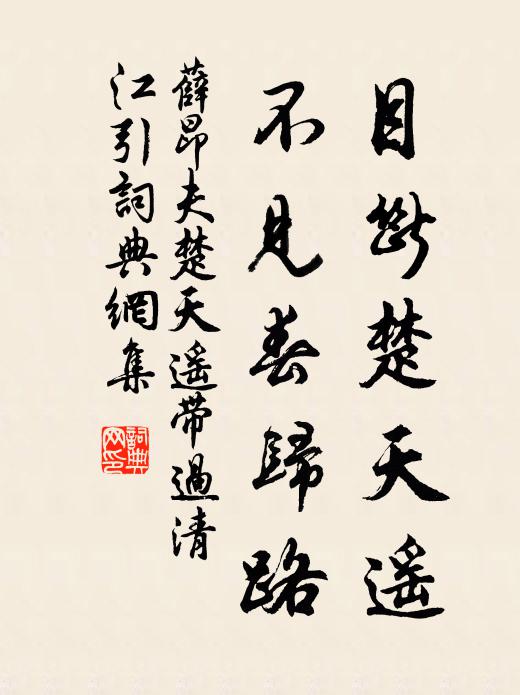 目斷楚天遥
不見春歸路
薛昂夫楚天遥带過清
江引詞典網集
詞典
网印